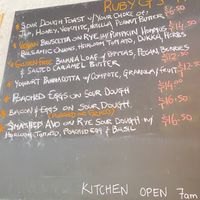 RUBY G'S
SOUR DOUGH TOAST W/ YOUR CHOICE OF: $6.50
JAM, HONEY, VEGEMITE, NUTELLA, PEANUT BUTTER
VEGAN BRUSCHETTA ON RYE W/ PUMPKIN HUMMUS $14.50
BALSAMIC ONIONS, HEIRLOOM TOMATO, DUKKA, HERBS
GLUTEN FREE BANANA LOAF W/ PISTACHIO, PECAN BERRIES $12.50
& SALTED CARAMEL BUTTER
YOGURT PANNACOTTA W/ COMPOTE, GRANOLA/FRUIT $12.50
POACHED EGGS ON SOUR DOUGH $14.00
BACON & EGGS ON SOUR DOUGH $16.50
(POACHED OR FRIED)
SMASHED AVO ON RYE SOUR DOUGH W/ $16.50
HEIRLOOM TOMATO, POACHED EGG & BASIL
KITCHEN OPEN 7am